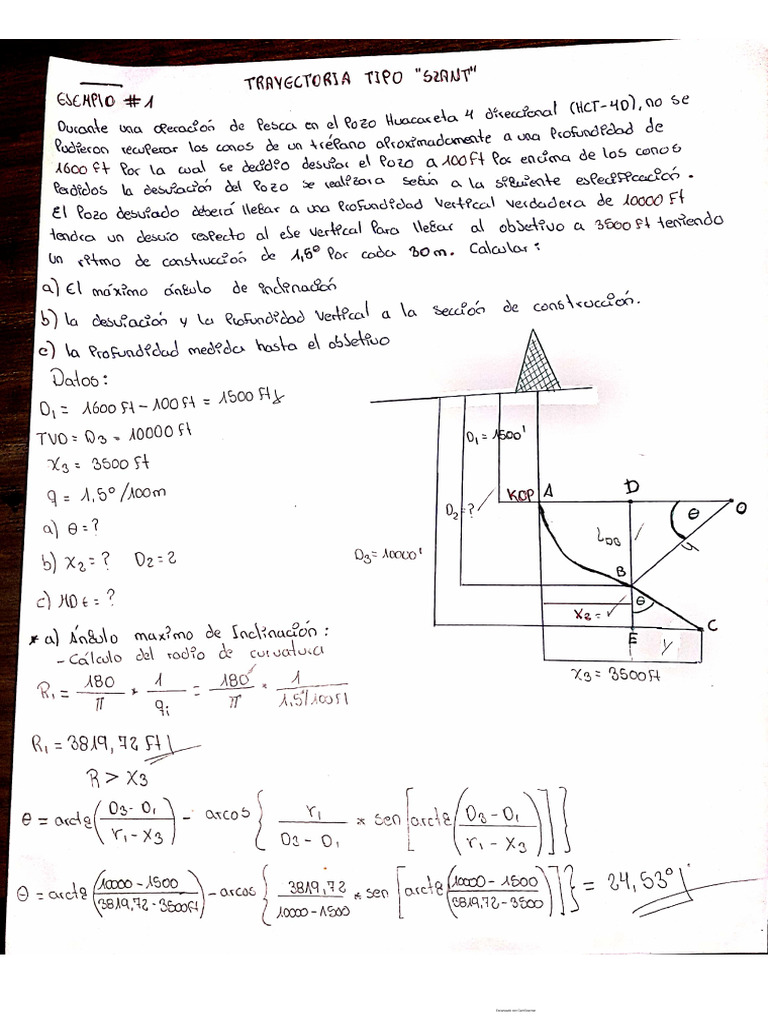 TRAYECTORIA TIPO "SLANT"
EJEMPLO #1
Durante una operación de Pesca en el Pozo Huacareta 4 direccional (HCT-4D), no se
Pudieron recuperar los conos de un trépano aproximadamente a una Profundidad de
1600 ft Por la cual se decidio desviar el Pozo a 100 ft Por encima de los conos
Perdidos la desviación del Pozo se realizara según a la siguiente especificación.
El Pozo desviado deberá llegar a una Profundidad Vertical Verdadera de 10000 ft
tendra un desvio respecto al eje Vertical Para llegar al objetivo a 3500 ft teniendo
un ritmo de construcción de 1,5° Por cada 30 m. Calcular:
a) El máximo ángulo de inclinación
b) la desviación y la Profundidad Vertical a la sección de construcción.
c) la Profundidad medida hasta el objetivo
Datos:
D1 = 1600 ft - 100 ft = 1500 ft
TVD = D3 = 10000 ft
X3 = 3500 ft
q = 1,5°/100m
a) θ = ?
b) X2 = ? D2 = ?
c) MDt = ?
D1 = 1500'
KOP A D O
D2 = ?
θ
D3 = 10000'
B
θ
X2 =
E C
Y
X3 = 3500 ft
* a) Ángulo maximo de Inclinación:
- Cálculo del radio de curvatura
R1 = 180/π * 1/qi = 180°/π * 1/1,5°/100ft
R1 = 3819,72 ft
R > X3
θ = arctg(D3 - D1/r1 - X3) - arcos{r1/D3 - D1 * sen[arctg(D3 - D1/r1 - X3)]}
θ = arctg(10000 - 1500/3819,72 - 3500ft) - arcos{3819,72/10000 - 1500 * sen[arctg(10000 - 1500/3819,72 - 3500)]} = 24,53°